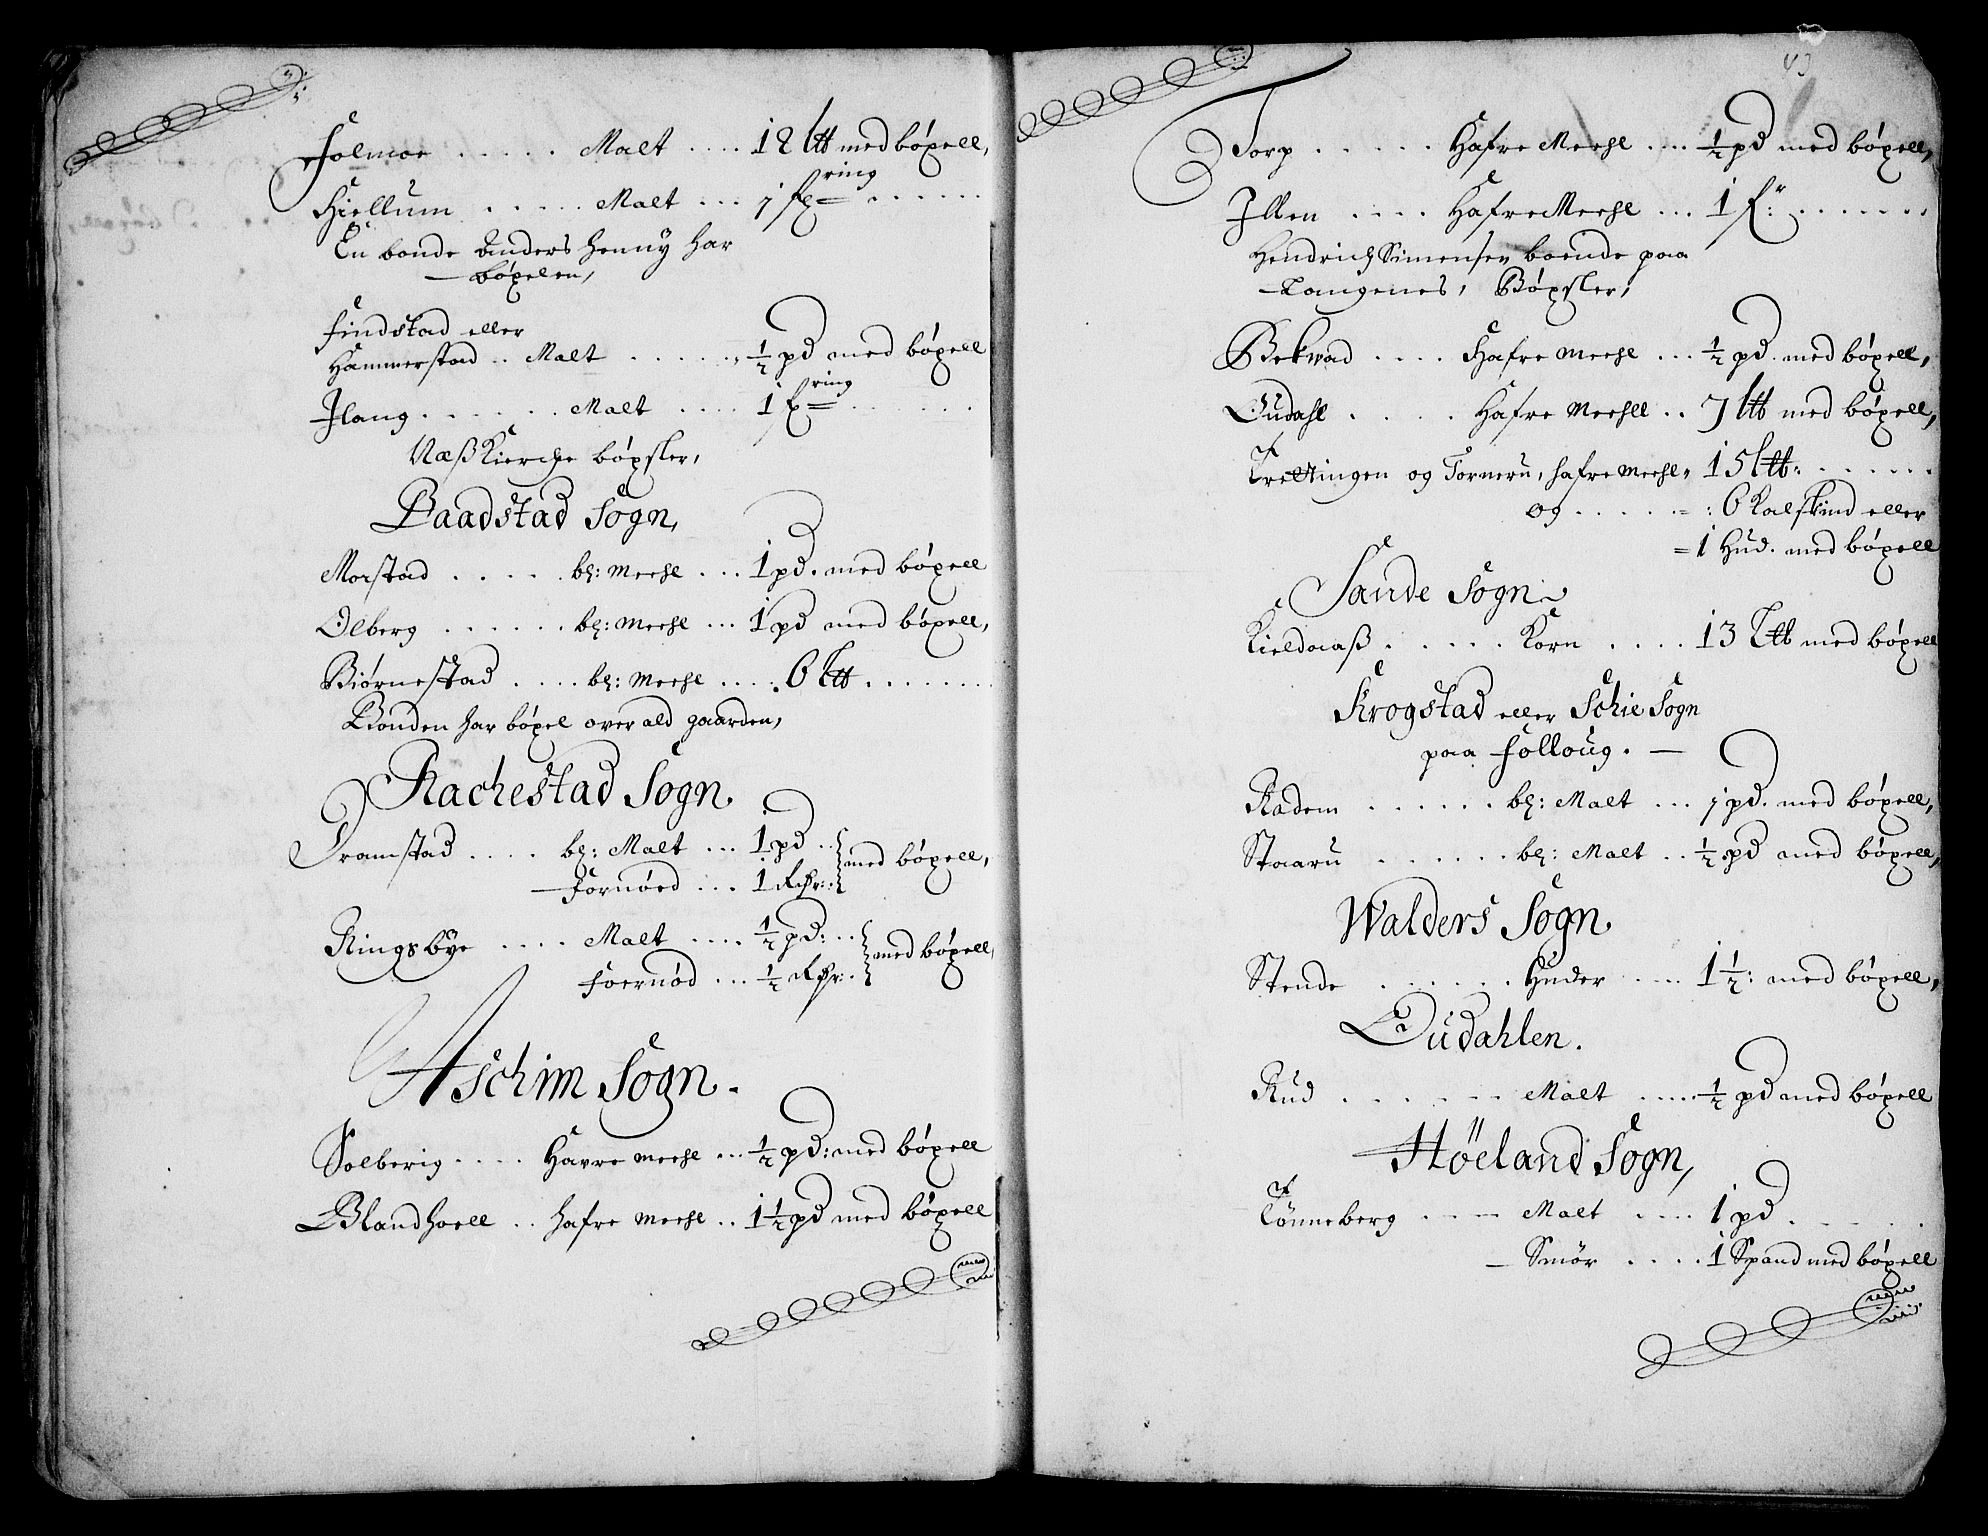 Folmoe . . . . . Malt . . . . 18 ltt med bøxell,
Hiellum . . . . . Malt . . . 1 fxring . . . . . .
En bonde Anders henny har
— bøxelen,
Findstad eller
Hammerstad . . Malt . . . . . . ½ pd med bøxell
Ilang . . . . . . Malt . . . . 1 fxring . . . . . .
Næß Kierche bøxsler,
Baadstad Sogn,
Morstad . . . . . bl: Meehl . . . 1 pd. med bøxell
Olberg . . . . . . bl: Meehl . . . 1 pd med bøxell,
Biørnestad . . . . bl: Meehl . . . . 6 ltt . . . . . . .
Bonden har bøxel over ald gaarden,
Rachestad Sogn
Tramstad . . . . bl: Malt . . . 1 pd . .
med bøxell,
— Fornøed . . . 1 Rdr: .
Ringsbye . . . . Malt . . . . ½ pd: . .
med bøxell,
Foernød . . . ½ Rdr: .
Aschim Sogn .
Solberig . . . . Havre meehl . . . ½ pd: med bøxell
Blandhoell . . hafre meehl . . 1½ pd med bøxell
43
Torp . . . . . Hafre Meehl . . . ½ pd med bøxell,
Illen . . . . Hafre Meehl . . . 1 fr: . . . . . . .
Hendrich Simensen boende paa
— Langenes, Bøxsler,
Bekvad . . . . Hafre meehl . . . ½ pd. med bøxell,
Oudahl . . . . Hafre Meehll . . 7 ltt med bøxell,
Trettingen og Torneru, hafre meehl, 15 ltt: . . . . . .
og . . . . . = : 6 Kalfskind eller
= 1 Hud. med bøxell
Sande Sogn
Kieldaaß . . . . . Korn . . . . 13 ltt med bøxell
Krogstad eller Schie Sogn
paa Folloug. —
Radem . . . . . . bl: Malt . . . 1 pd. med bøxell,
Staaru . . . . . . bl: Malt . . ½ pd med bøxell,
Walders Sogn
Stende . . . . . . Huder . . . . 1½: med bøxell,
Oudahlen.
Rud . . . . . . Malt . . . . . ½ pd med bøxell
Höeland Sogn,
Tönneberg . . . . Malt . . . . 1 pd . . . . .
— Smör . . . . 1 Spand med bøxell